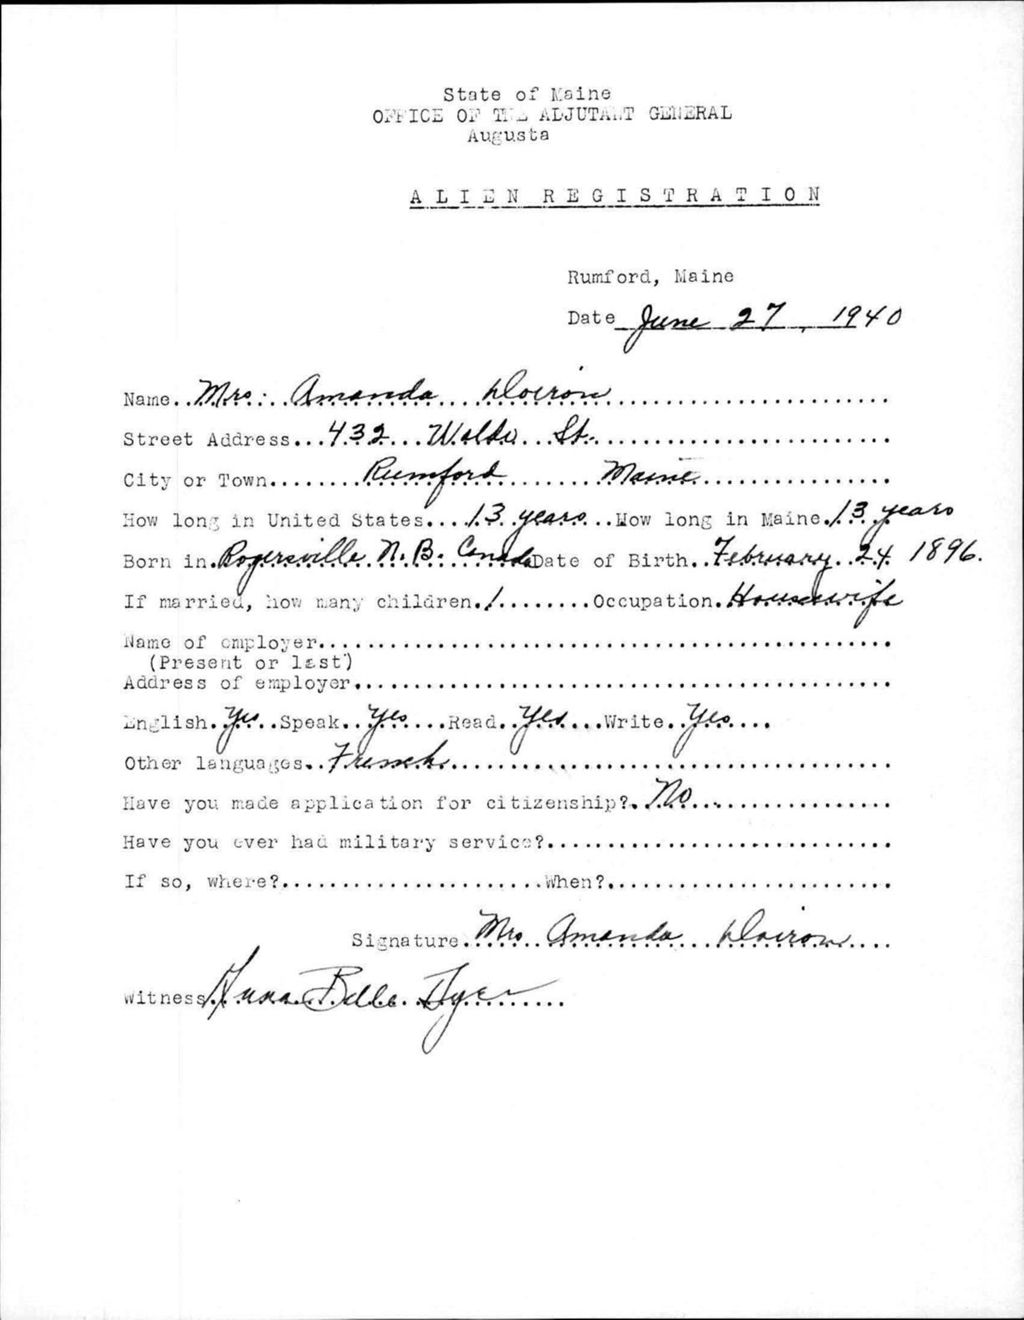 State of Maine
OFFICE OF THE ADJUTANT GENERAL
Augusta
ALIEN REGISTRATION
Rumford, Maine
Date June 27, 1940
Name..Mrs...Amanda...Doiron.......................
Street Address...432...Waldo...St.........................
City or Town........Rumford........Maine................
How long in United States....13 years...How long in Maine.13 years
Born in.Rogersville N.B. Canada Date of Birth..February..24 1896.
If married, how many children.1........Occupation.Housewife
Name of employer...............................................
(Present or last)
Address of employer............................................
English.Yes..Speak..Yes....Read..Yes....Write..Yes....
Other languages..French....................................
Have you made application for citizenship?..No..................
Have you ever had military service?............................
If so, where?......................When?.......................
Signature.Mrs..Amanda...Doiron....
Witness Anna Belle Dyer.......